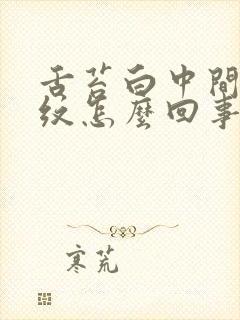 舌苔白中間
紋怎麼回事
寒荒